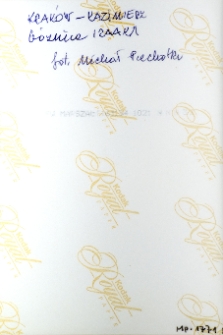 KRAKÓW – KAZIMIERZ
Bóżnica IZAAKA
fot. Michał Piechotka
Mp. 1771